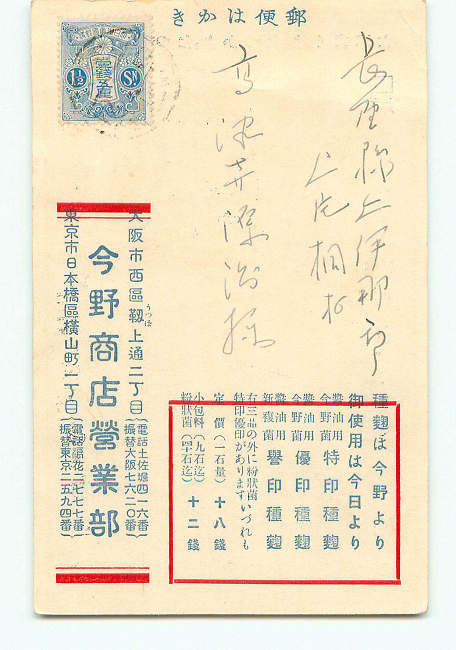 郵便はかき
長野縣上伊那郡
上片桐村
様
種麹は今野より
御使用は今日より
醬油用
今野菌 特印種麹
醬油用
今野菌 優印種麹
醬油用
新穀菌 譽印種麹
右三品の外に粉狀菌
特印優印がありますいづれも
定價(一石量) 十八錢
小包料(九石迄)
粉狀菌(四石迄) 十二錢
1½ Sn
壹錢五厘
大阪市西區靱上通二丁目
うつぼ
電話土佐堀四二六番
振替大阪七六二〇番
今野商店營業部
東京市日本橋區橫山町一丁目
電話浪花二七七七番
振替東京二五九四番